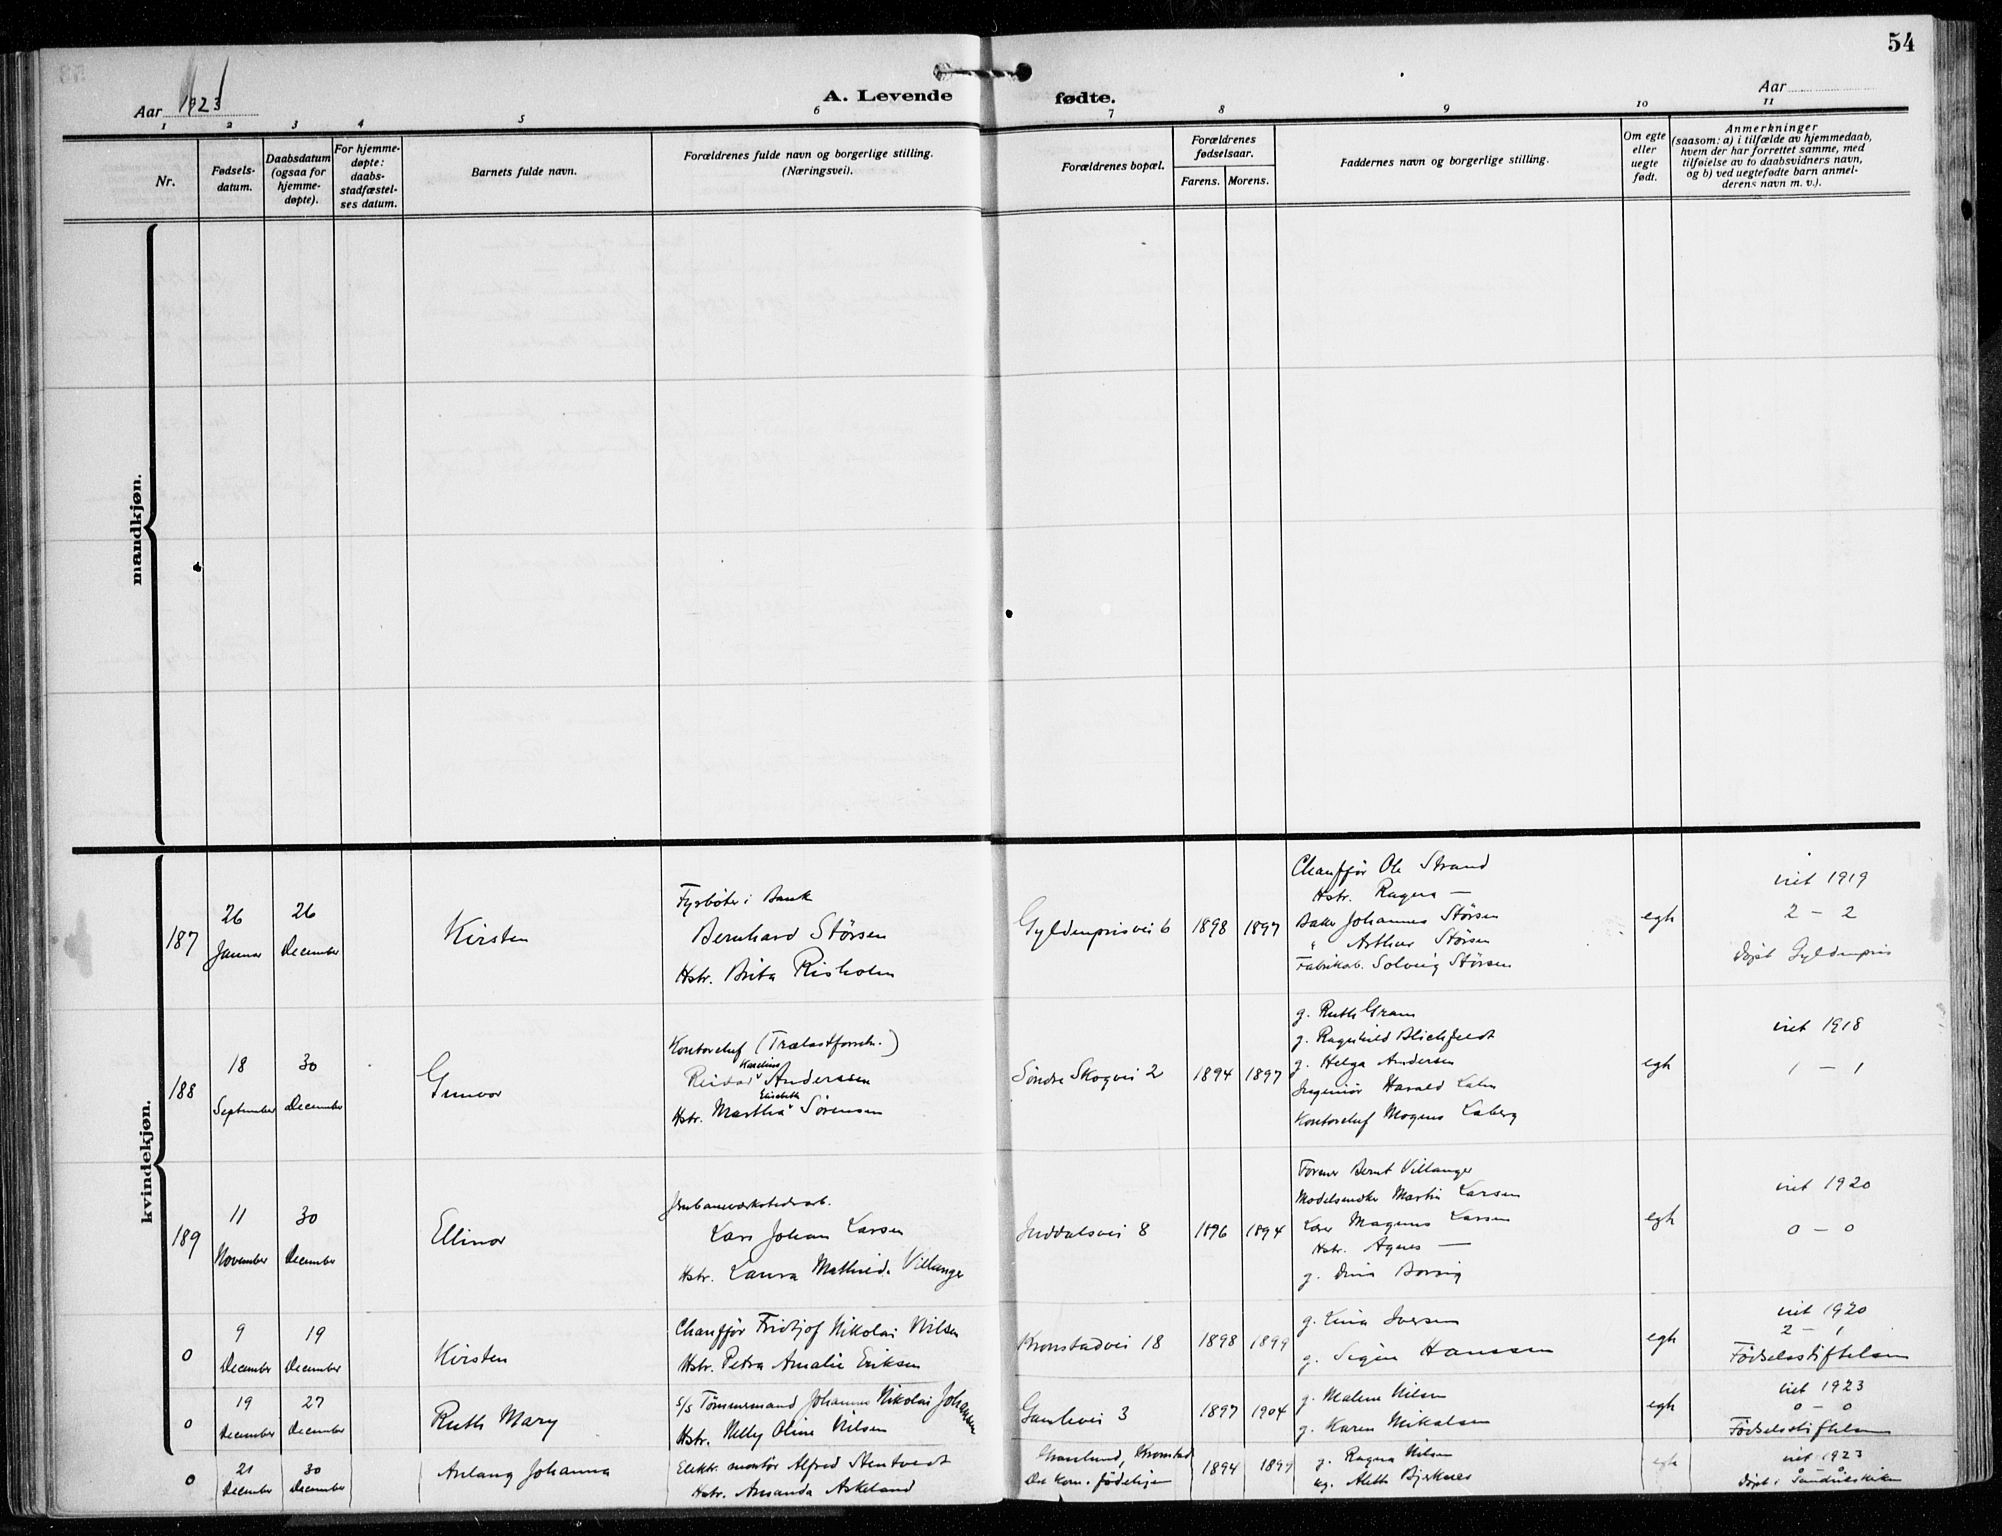 54
Aar 1923
A. Levende fødte.
Aar
1 2 3 4 5 6 7 8 9 10 11
Nr.
Fødsels-
datum.
Daabsdatum
(ogsaa for
hjemme-
døpte).
For hjemme-
døpte:
daabs-
stadfæstel-
ses datum.
Barnets fulde navn.
Forældrenes fulde navn og borgerlige stilling.
(Næringsvei).
Forældrenes bopæl.
Forældrenes
fødselsaar.
Farens. Morens.
Faddernes navn og borgerlige stilling.
Om egte
eller
uegte
født.
Anmerkninger
(saasom: a) i tilfælde av hjemmedaab,
hvem der har forrettet samme, med
tilføielse av to daabsvidners navn,
og b) ved uegtefødte barn anmel-
derens navn m. v.).
mandkjøn.
kvindekjøn.
187
26
Januar
26
December
Kirsten
Fyrbøter i Bank
Bernhard Størsen
Hstr. Brita Risholm
Gyldenprisvei 6
1898
1897
Chauffør Ole Strand
Hstr. Ragna —
Bader Johannes Størsen
" Arthur Størsen
Fabrikab. Solveig Størsen
egte
viet 1919
2 – 2
Døpt Gyldenpris
188
18
September
30
December
Gunvor
Kontorchef (Trælastforretn.)
Karelius
Reidar Anderssen
Elisabeth
Hstr. Martha Sørensen
Søndre Skogvei 2
1894
1897
g. Ruth Gram
g. Ragnhild Blichfeldt
g. Helga Andersen
Ingeniør Harald Lahn
Kontorchef Mogens Laberg
egte
viet 1918
1 – 1
189
11
November
30
December
Ellinor
Jernbaneverkstedarb.
Lars Johan Larsen
Hstr. Laura Mathilde Villanger
Inddalsvei 8
1896
1894
Former Bernt Villanger
Modelsnedker Martin Larsen
Magnus Larsen
Hstr. Agnes —
g.
egte
viet 1920
0 – 0
0
9
December
19
December
Kirsten
Chauffør Fridtjof Nikolai Nilsen
Hstr. Petra Amalie Eriksen
Kronstadvei 18
1898
1899
g. Lina Iversen
g. Signe Hanssen
egte
viet 1920
2 – 1
Fødselsstiftelsen
0
19
December
27
December
Ruth Mary
s/s Tømmermand Johannes Nikolai Johansen
Hstr. Nelly Oline Nilsen
Gamlevei 3
1897
1904
g. Malene Nilsen
g. Karen Mikalsen
egte
viet 1923
0 – 0
Fødselsstiftelsen
0
21
December
30
December
Aslaug Johanna
Elektr. montør Alfred Stentvedt
Hstr. Amanda Askeland
Kronstad
Det kom. fødehjem
1894
1897
g. Ragna Nilsen
ug. Aleth Bjerknes
egte
viet 1923
0 – 0
Døpt i Sandvikskirken